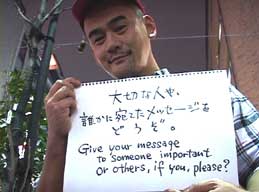 大切な人や、
誰かに宛てたメッセージを
どうぞ。
Give your message
to someone important
or others, if you, please?